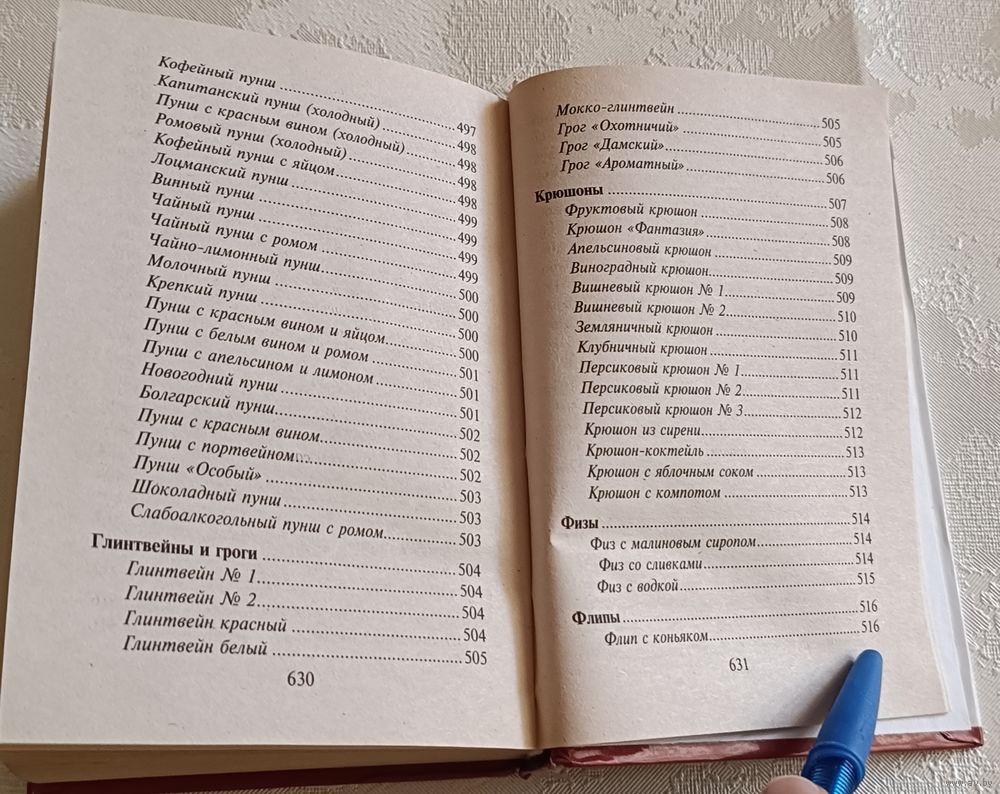 Кофейный пунш ... 497
Капитанский пунш (холодный) ... 498
Пунш с красным вином (холодный) ... 498
Ромовый пунш (холодный) ... 498
Кофейный пунш с яйцом ... 498
Лоцманский пунш ... 499
Винный пунш ... 499
Чайный пунш ... 499
Чайный пунш с ромом ... 499
Чайно-лимонный пунш ... 500
Молочный пунш ... 500
Крепкий пунш ... 500
Пунш с красным вином и яйцом ... 500
Пунш с белым вином и ромом ... 501
Пунш с апельсином и лимоном ... 501
Новогодний пунш ... 501
Болгарский пунш ... 502
Пунш с красным вином ... 502
Пунш с портвейном ... 502
Пунш «Особый» ... 503
Шоколадный пунш ... 503
Слабоалкогольный пунш с ромом ... 503
Глинтвейны и гроги ... 504
Глинтвейн № 1 ... 504
Глинтвейн № 2 ... 504
Глинтвейн красный ... 504
Глинтвейн белый ... 505
630
Мокко-глинтвейн ... 505
Грог «Охотничий» ... 505
Грог «Дамский» ... 506
Грог «Ароматный» ... 506
Крюшоны ... 507
Фруктовый крюшон ... 508
Крюшон «Фантазия» ... 508
Апельсиновый крюшон ... 509
Виноградный крюшон ... 509
Вишневый крюшон № 1 ... 509
Вишневый крюшон № 2 ... 510
Земляничный крюшон ... 510
Клубничный крюшон ... 511
Персиковый крюшон № 1 ... 511
Персиковый крюшон № 2 ... 511
Персиковый крюшон № 3 ... 512
Крюшон из сирени ... 512
Крюшон-коктейль ... 513
Крюшон с яблочным соком ... 513
Крюшон с компотом ... 513
Физы ... 514
Физ с малиновым сиропом ... 514
Физ со сливками ... 514
Физ с водкой ... 515
Флипы ... 516
Флип с коньяком ... 516
631
www.av.by